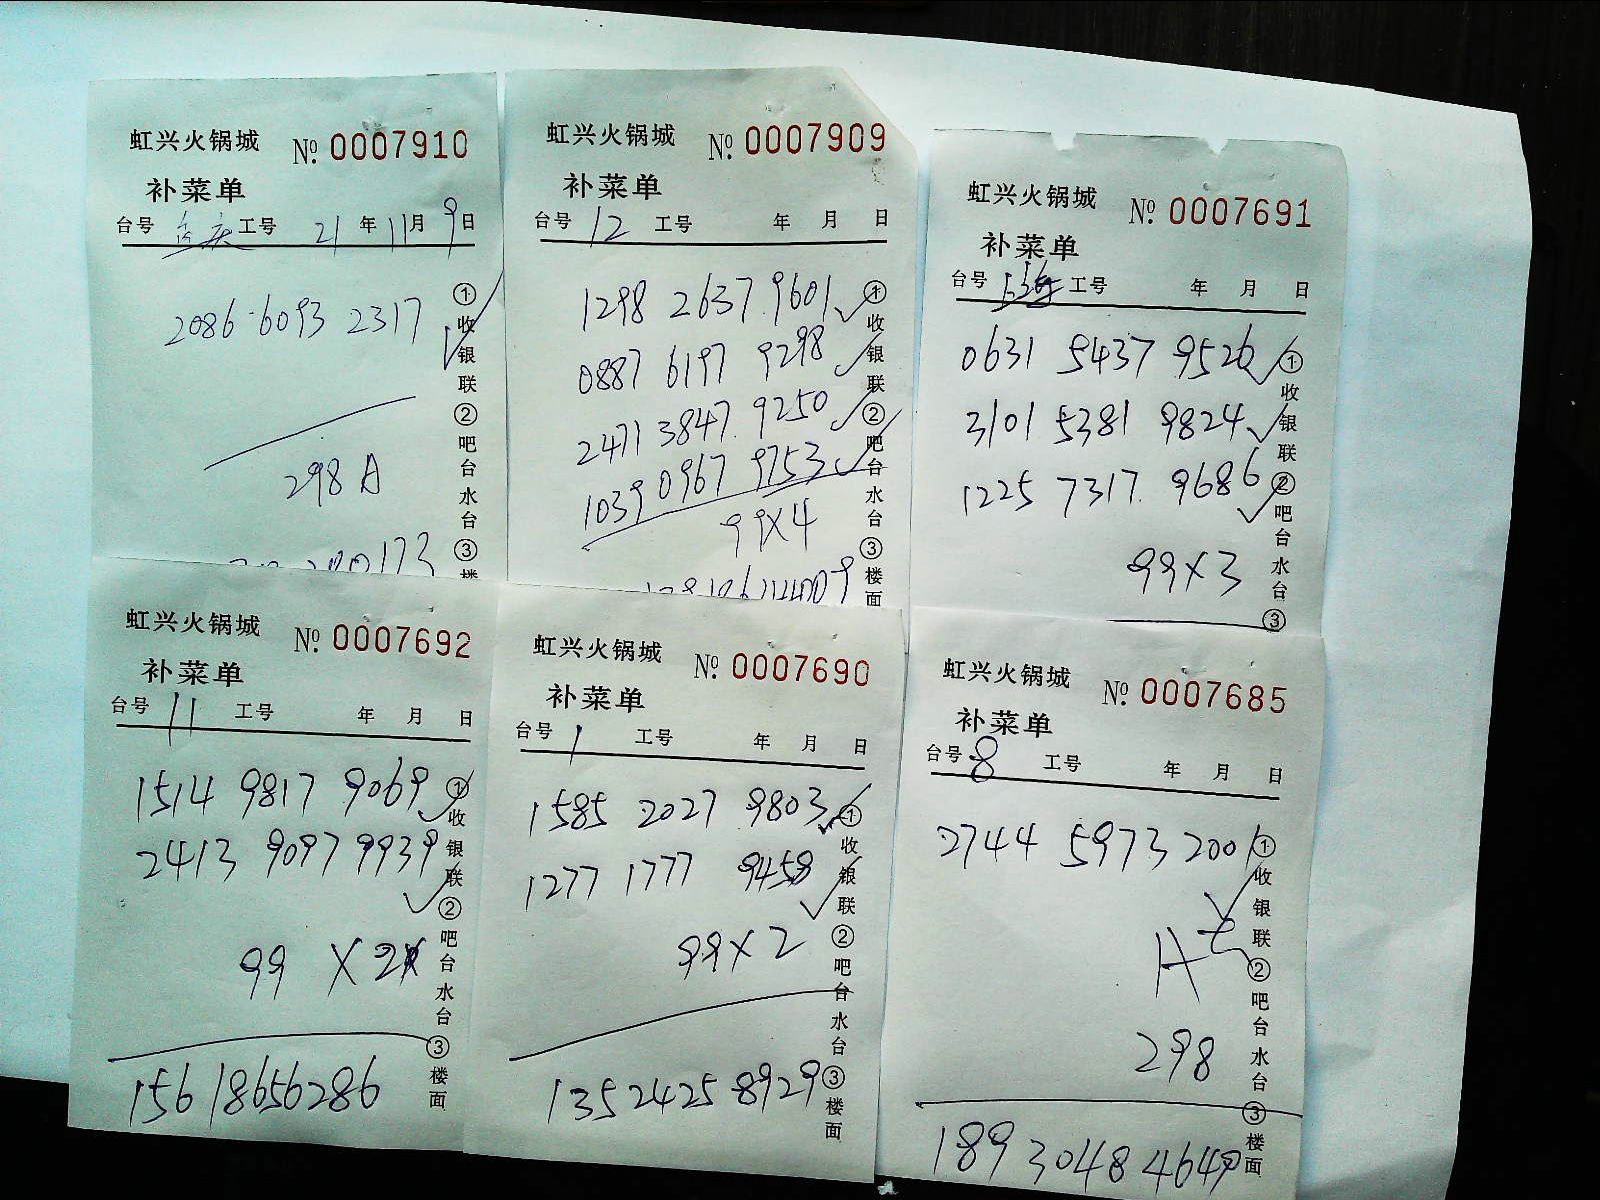 虹兴火锅城 № 0007910
补菜单
台号 工号 21年11月9日
2086 6093 2317
298 A
①收银联②吧台水台③楼
虹兴火锅城 № 0007909
补菜单
台号 12 工号 年 月 日
1298 2637 9601
0887 6197 9298
2471 3847 9250
1039 0967 9753
99×4
①收银联②吧台水台③楼面
虹兴火锅城 № 0007691
补菜单
台号 工号 年 月 日
0631 5437 9526
3101 5381 9824
1225 7317 9686
99×3
①收银联②吧台水台③
虹兴火锅城 № 0007692
补菜单
台号 11 工号 年 月 日
1514 9817 9069
2413 9097 9939
99 ×2
15618656286
①收银联②吧台水台③楼面
虹兴火锅城 № 0007690
补菜单
台号 1 工号 年 月 日
1585 2027 9803
1277 1777 9458
99×2
13524258929
①收银联②吧台水台③楼面
虹兴火锅城 № 0007685
补菜单
台号 8 工号 年 月 日
2744 5973 2001
A
298
①收银联②吧台水台③楼面